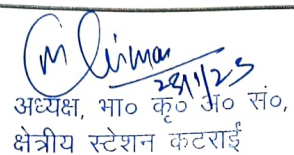 28/1/23
अध्यक्ष, भा० कृ० अ० सं०,
क्षेत्रीय स्टेशन कटराईं